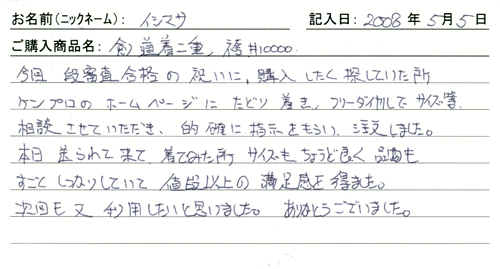 お名前(ニックネーム): イシマサ 記入日: 2008年5月5日
ご購入商品名: 剣道着二重, 袴#10000.
今回 段審査合格の祝いに, 購入したく探していた所
ケンプロのホームページにたどり着き, フリーダイヤルしてサイズ等,
相談させていただき, 的確に指示をもらい, 注文しました。
本日 送られて来て, 着てみた所 サイズも ちょうど良く 品質も
すごく しっかりしていて 値段以上の満足感を得ました。
次回も又 利用したいと思いました。 ありがとうございました。